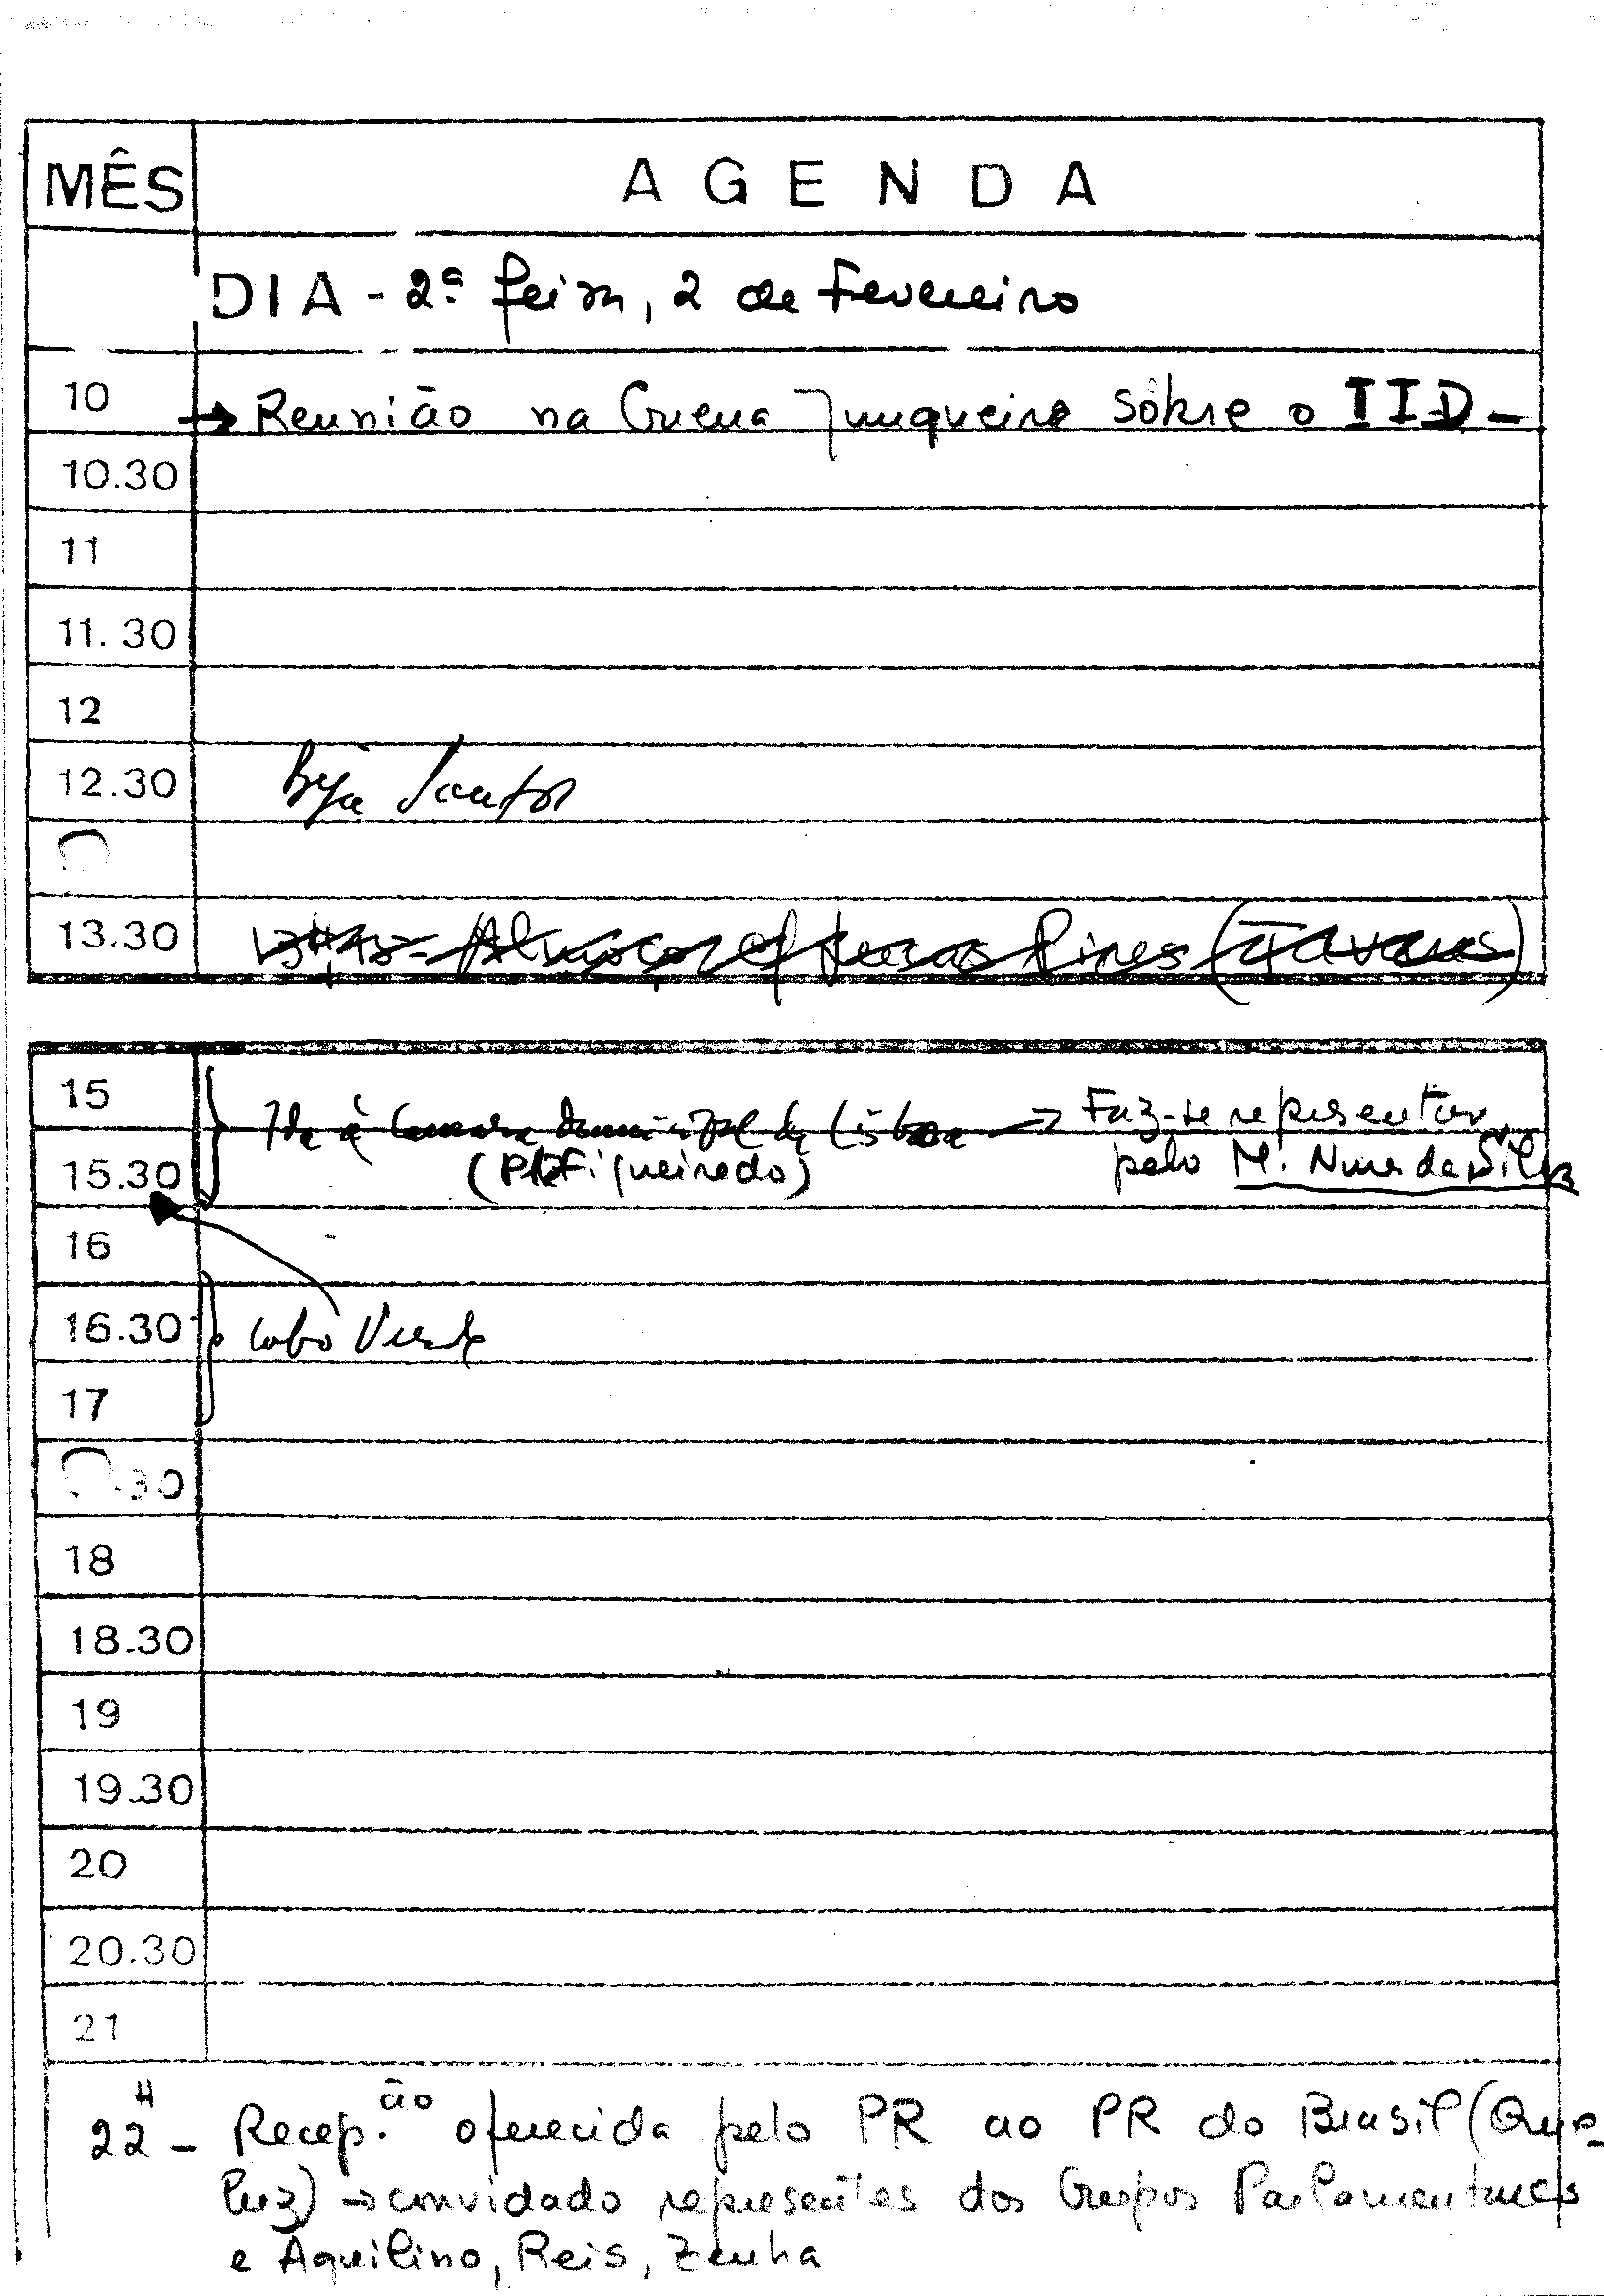 MÊS AGENDA
DIA - 2ª feira, 2 de Fevereiro
10 → Reunião na Guerra Junqueiro Sôbre o IID -
10.30
11
11.30
12
12.30 Beja Santos
13.30 13H,15 - Almoço c/ Pires (Tavares)
15
Ida à Camara Municipal de Lisboa → Faz-se representar
15.30 (PR Figueiredo) pelo M. Nunes da Silva
16
16.30 Cabo Verde
17
.30
18
18.30
19
19.30
20
20.30
21
22H - Recep.ão oferecida pelo PR ao PR do Brasil (Que-
luz) → convidado representes dos Grupos Parlamentares
e Aquilino, Reis, Zenha